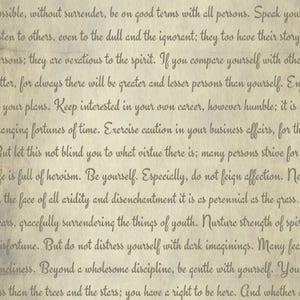 ossible, without surrender, be on good terms with all persons. Speak you
sten to others, even to the dull and the ignorant; they too have their story
rsons; they are vexatious to the spirit. If you compare yourself with othe
tter, for always there will be greater and lesser persons than yourself. En
your plans. Keep interested in your own career, however humble; it is
anging fortunes of time. Exercise caution in your business affairs, for th
But let this not blind you to what virtue there is; many persons strive for
fe is full of heroism. Be yourself. Especially, do not feign affection. Ne
the face of all aridity and disenchantment it is as perennial as the grass.
ears, gracefully surrendering the things of youth. Nurture strength of spir
isfortune. But do not distress yourself with dark imaginings. Many fea
neliness. Beyond a wholesome discipline, be gentle with yourself. You
ss than the trees and the stars; you have a right to be here. And whether